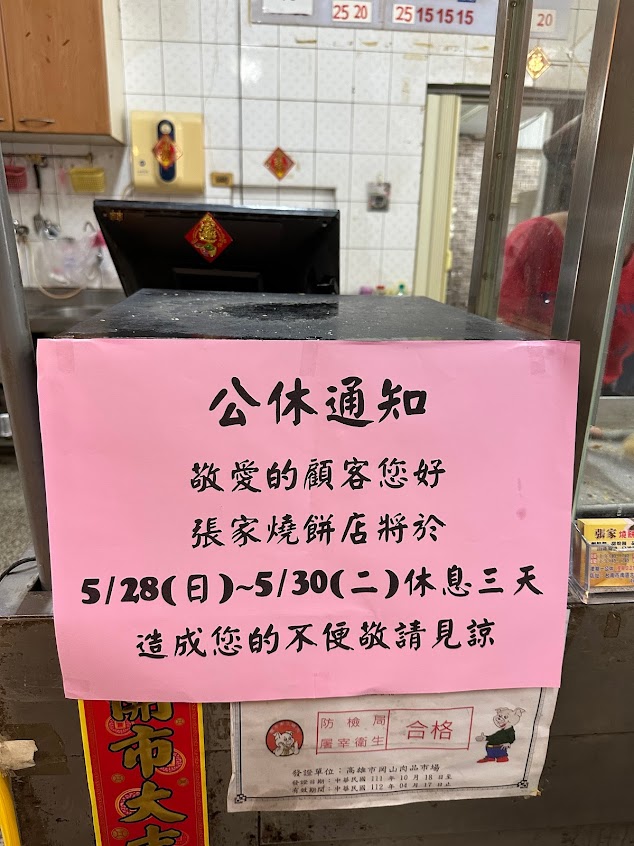 25 20
25 15 15 15
20
公休通知
敬愛的顧客您好
張家燒餅店將於
5/28(日)~5/30(二)休息三天
造成您的不便敬請見諒
張家燒餅
開市大吉
防檢局
屠宰衛生
合格
發證單位：高雄市岡山肉品市場
發證日期：中華民國 111 年 10 月 18 日至
有效期間：中華民國 112 年 04 月 17 日止